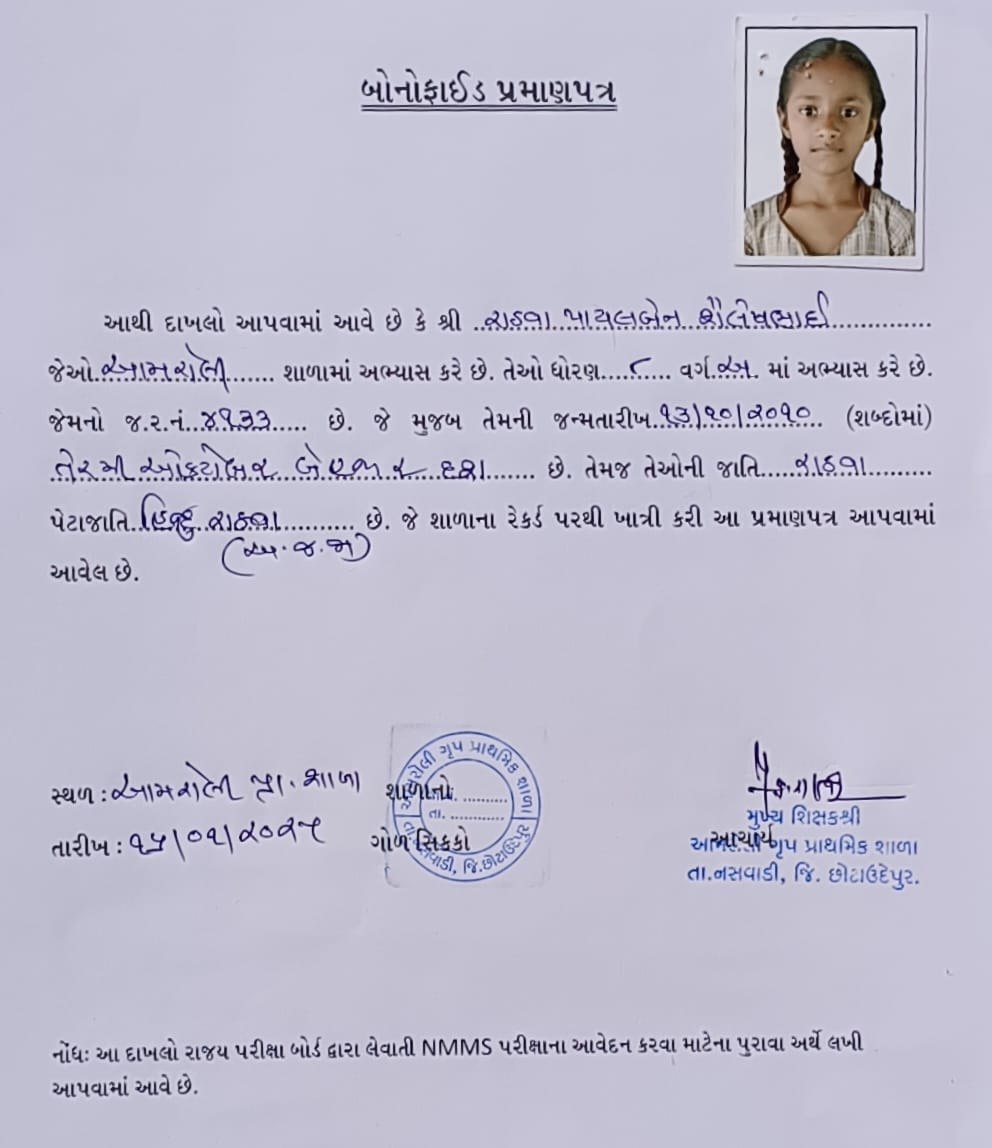 બોનોફાઈડ પ્રમાણપત્ર
આથી દાખલો આપવામાં આવે છે કે શ્રી ..રાઠવા પાયલબેન શૈલેષભાઈ..............
જેઓ..આમરોલી....... શાળામાં અભ્યાસ કરે છે. તેઓ ધોરણ....૮..... વર્ગ..અ.. માં અભ્યાસ કરે છે.
જેમનો જ.ર.નં..૪૧૩૩..... છે. જે મુજબ તેમની જન્મતારીખ..૧૩/૧૦/૨૦૧૦... (શબ્દોમાં)
તેરમી ઓક્ટોબર બેહજાર દશ....... છે. તેમજ તેઓની જાતિ.....રાઠવા.........
પેટાજાતિ..હિન્દુ રાઠવા........... છે. જે શાળાના રેકર્ડ પરથી ખાત્રી કરી આ પ્રમાણપત્ર આપવામાં
(અ.જ.જા)
આવેલ છે.
સ્થળ : આમરોલી પ્રા. શાળા
તારીખ : ૧૫/૦૧/૨૦૨૫
શાળાનો
ગોળ સિકકો
આમરોલી ગૃપ પ્રાથમિક શાળા
તા. નસવાડી, જિ.છોટાઉદેપુર
તા. ..........
મુખ્ય શિક્ષકશ્રી
આચાર્ય
ગૃપ પ્રાથમિક શાળા
તા.નસવાડી, જિ. છોટાઉદેપુર.
નોંધઃ આ દાખલો રાજય પરીક્ષા બોર્ડ દ્વારા લેવાતી NMMS પરીક્ષાના આવેદન કરવા માટેના પુરાવા અર્થે લખી
આપવામાં આવે છે.